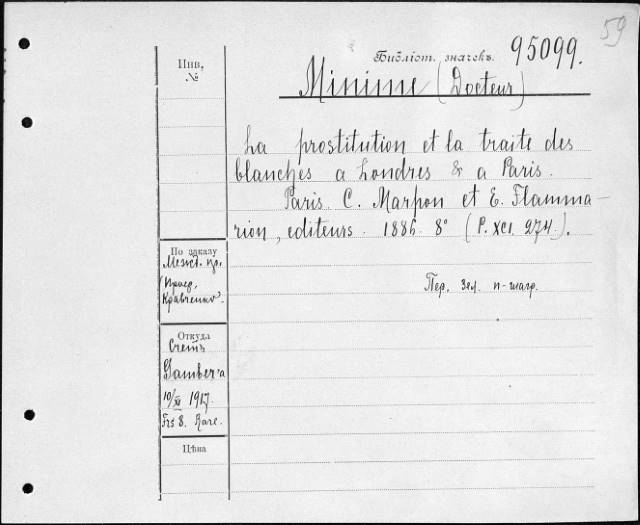 59
Библіот. значекъ. 95099.
Инв.
№
Minime (Docteur)
La prostitution et la traite des
blanches a Londres & a Paris.
Paris. C. Marpon et E. Flamma-
rion, editeurs. 1886. 8° (P. XCI. 274.).
Пер. зел. п-шагр.
По заказу
Кравченко
Откуда
Счетъ
Gamber'а
10/XI 1917.
Frs 8. Rare.
Цѣна